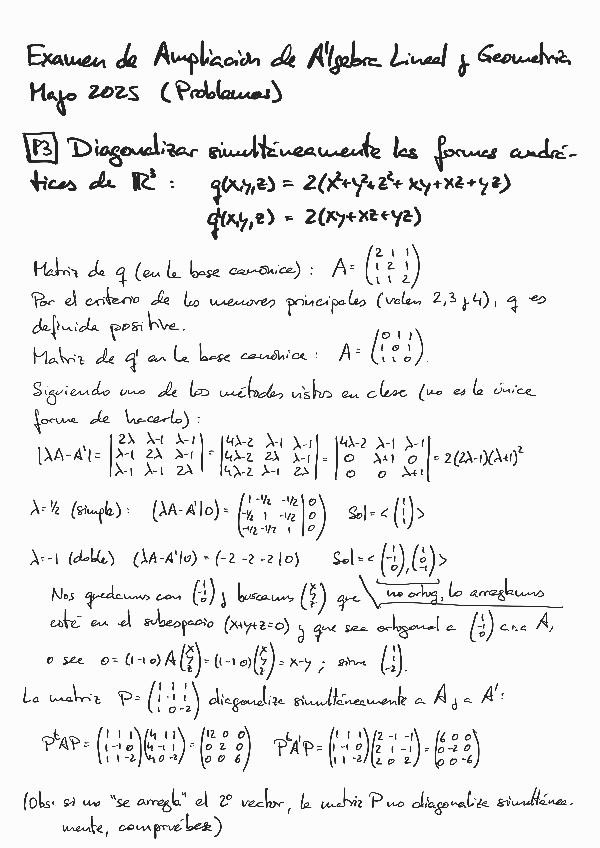 Examen de Ampliación de Álgebra Lineal y Geometría
Mayo 2025 (Problemas)
P3 Diagonalizar simultáneamente las formas cuadrá-
ticas de ℝ³ : q(x,y,z) = 2(x²+y²+z²+xy+xz+yz)
q'(x,y,z) = 2(xy+xz+yz)
Matriz de q (en la base canónica) : A = (2 1 1 / 1 2 1 / 1 1 2)
Por el criterio de los menores principales (valen 2, 3 y 4), q es
definida positiva.
Matriz de q' en la base canónica : A = (0 1 1 / 1 0 1 / 1 1 0).
Siguiendo uno de los métodos vistos en clase (no es la única
forma de hacerlo) :
|λA-A'| = |2λ λ-1 λ-1 / λ-1 2λ λ-1 / λ-1 λ-1 2λ| = |4λ-2 λ-1 λ-1 / 4λ-2 2λ λ-1 / 4λ-2 λ-1 2λ| = |4λ-2 λ-1 λ-1 / 0 λ+1 0 / 0 0 λ+1| = 2(2λ-1)(λ+1)²
λ=½ (simple) : (λA-A'|0) = (1 -1/2 -1/2 | 0 / -1/2 1 -1/2 | 0 / -1/2 -1/2 1 | 0) Sol = <(1 / 1 / 1)>
λ=-1 (doble) (λA-A'|0) = (-2 -2 -2 | 0) Sol = <(1 / -1 / 0), (1 / 0 / -1)>
no ortog, lo arreglamos
Nos quedamos con (1 / -1 / 0) y buscamos (x / y / z) que
esté en el subespacio (x+y+z=0) y que sea ortogonal a (1 / -1 / 0) c.r.a A,
o sea 0 = (1 -1 0) A (x / y / z) = (1 -1 0)(x / y / z) = x-y ; sirve (1 / 1 / -2).
La matriz P = (1 1 1 / 1 -1 1 / 1 0 -2) diagonaliza simultáneamente a A y a A' :
PᵗAP = (1 1 1 / 1 -1 0 / 1 1 -2)(4 1 1 / 4 -1 1 / 4 0 -2) = (12 0 0 / 0 2 0 / 0 0 6) PᵗA'P = (1 1 1 / 1 -1 0 / 1 1 -2)(2 -1 -1 / 2 1 -1 / 2 0 2) = (6 0 0 / 0 -2 0 / 0 0 -6)
(Obs: si no "se arregla" el 2º vector, la matriz P no diagonaliza simultánea-
mente, compruébese)